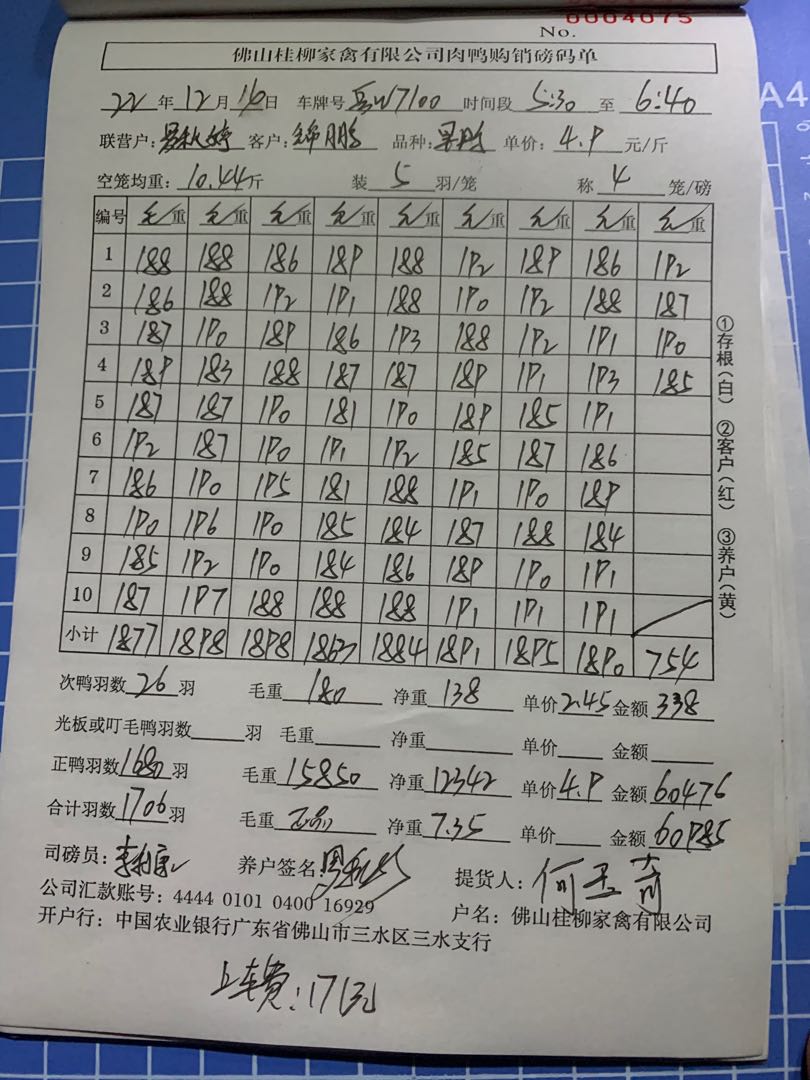 No. 0004075
佛山桂柳家禽有限公司肉鸭购销磅码单
22年12月16日 车牌号 W7100 时间段 5:30 至 6:40
联营户: 客户:锦鹏 品种: 单价:4.9元/斤
空笼均重:10.44斤 装5羽/笼 称4笼/磅
编号 毛重 毛重 毛重 毛重 毛重 毛重 毛重 毛重 毛重
1 188 188 186 189 188 192 189 186 192
2 186 188 192 191 188 190 192 188 187
3 187 190 189 186 193 188 192 191 190
4 189 183 188 187 187 189 191 193 185
5 187 187 190 181 190 189 185 191
6 192 187 190 191 192 185 187 186
7 186 190 195 181 188 191 190 189
8 190 196 190 185 184 187 188 184
9 185 192 190 184 186 189 190 191
10 187 197 188 188 188 191 191 191
小计 1877 1898 1898 1863 1884 1891 1895 1890 754
次鸭羽数26羽 毛重180 净重138 单价2.45 金额338
光板或叮毛鸭羽数 羽 毛重 净重 单价 金额
正鸭羽数1680羽 毛重15850 净重12342 单价4.9 金额60476
合计羽数1706羽 毛重 净重7.35 单价 金额60985
司磅员: 养户签名 提货人:
公司汇款账号:4444 0101 0400 16929 户名:佛山桂柳家禽有限公司
开户行:中国农业银行广东省佛山市三水区三水支行
上车费:171元
①存根(白) ②客户(红) ③养户(黄)
A4